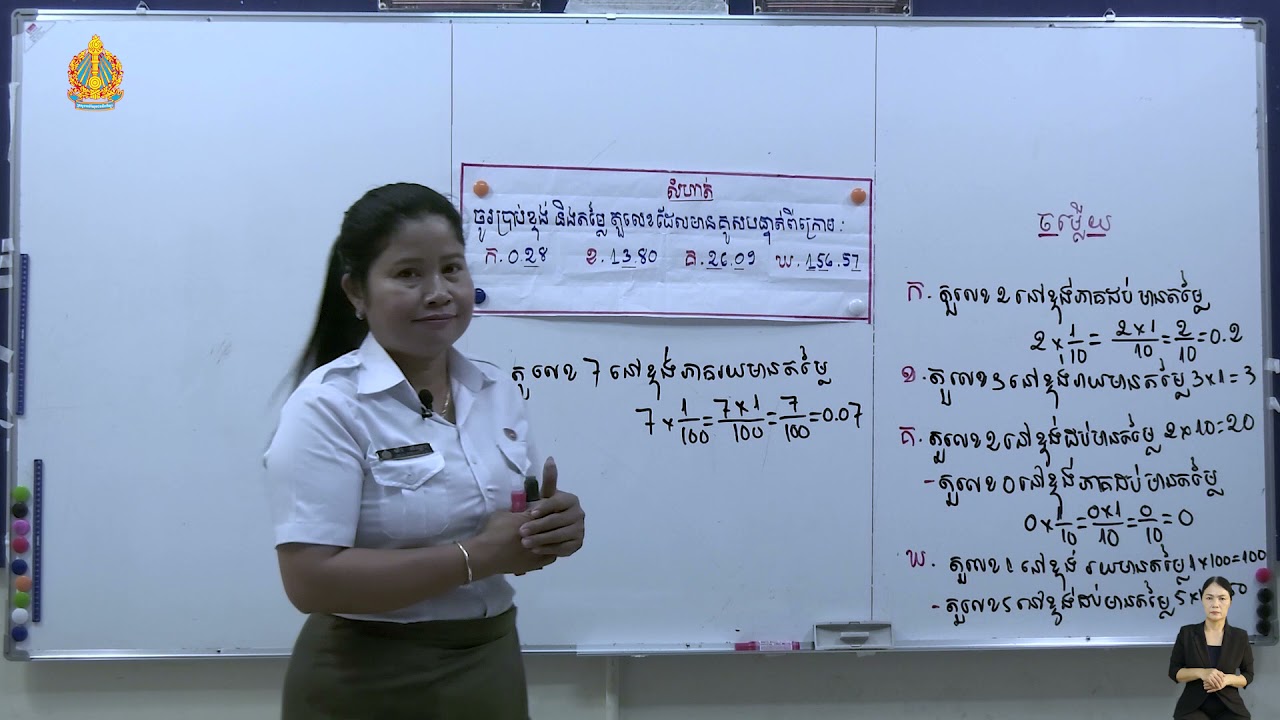 លំហាត់
ចូរប្រាប់ខ្ទង់ និងតម្លៃ តួលេខដែលមានគូសបន្ទាត់ពីក្រោម :
ក. 0.28 ខ. 13.80 គ. 26.09 ឃ. 156.57
តួលេខ 7 នៅខ្ទង់ភាគរយមានតម្លៃ
7 × 1/100 = 7×1/100 = 7/100 = 0.07
ចម្លើយ
ក. តួលេខ 2 នៅខ្ទង់ភាគដប់ មានតម្លៃ
2 × 1/10 = 2×1/10 = 2/10 = 0.2
ខ. តួលេខ 3 នៅខ្ទង់រាយមានតម្លៃ 3×1=3
គ. តួលេខ 2 នៅខ្ទង់ដប់មានតម្លៃ 2×10=20
-តួលេខ 0 នៅខ្ទង់ភាគដប់ មានតម្លៃ
0 × 1/10 = 0×1/10 = 0/10 = 0
ឃ. តួលេខ 1 នៅខ្ទង់ រយមានតម្លៃ 1×100=100
-តួលេខ 5 នៅខ្ទង់ដប់មានតម្លៃ 5×